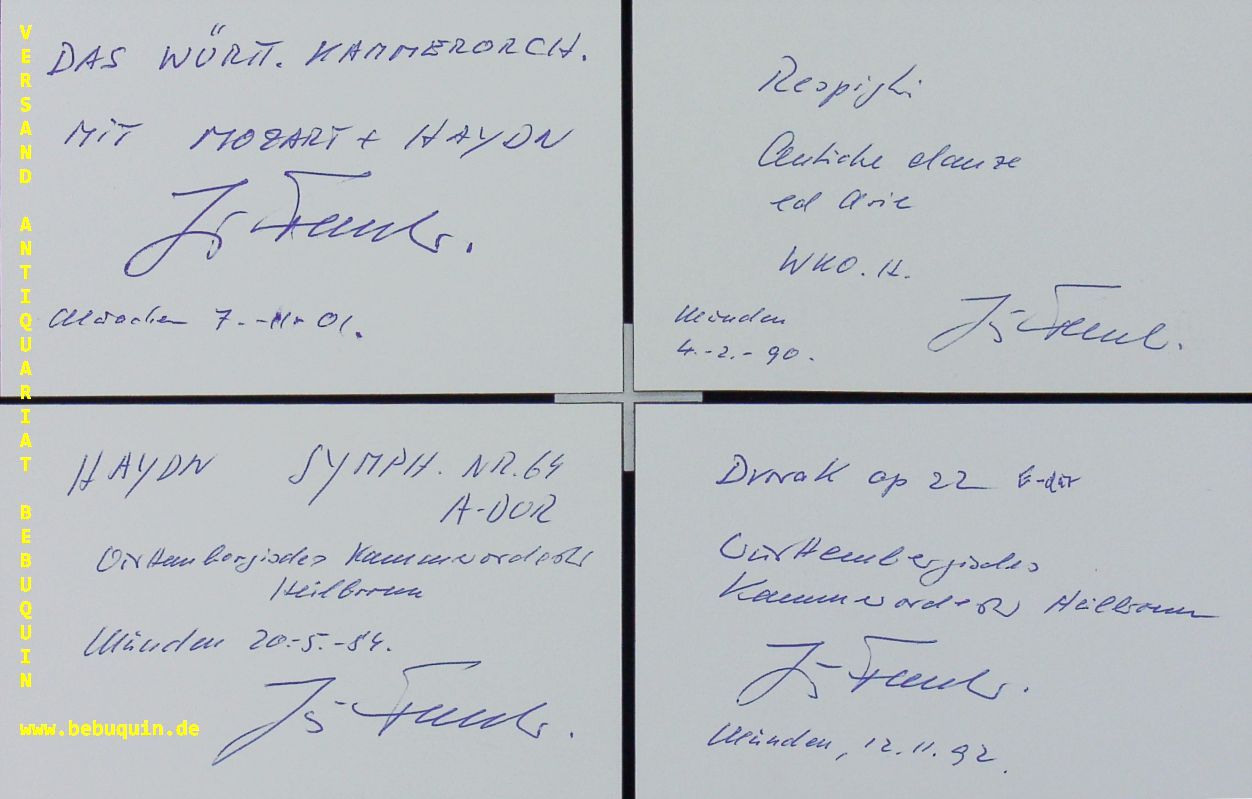 DAS WÜRTT. KAMMERORCH.
MIT MOZART + HAYDN
Jörg Faerber.
München 7.-11-01.
Respighi
Antiche danze
ed Arie
WKO. H.
München
4.-2.-90.
Jörg Faerber.
HAYDN SYMPH. NR. 64
A-DUR
Württembergisches Kammerorchester
Heilbronn
München 20.-5.-84.
Jörg Faerber.
Dvorak op 22 E-dur
Württembergisches
Kammerorchester Heilbronn
Jörg Faerber.
München, 12.11.92.
VERSAND ANTIQUARIAT BEBUQUIN
www.bebuquin.de